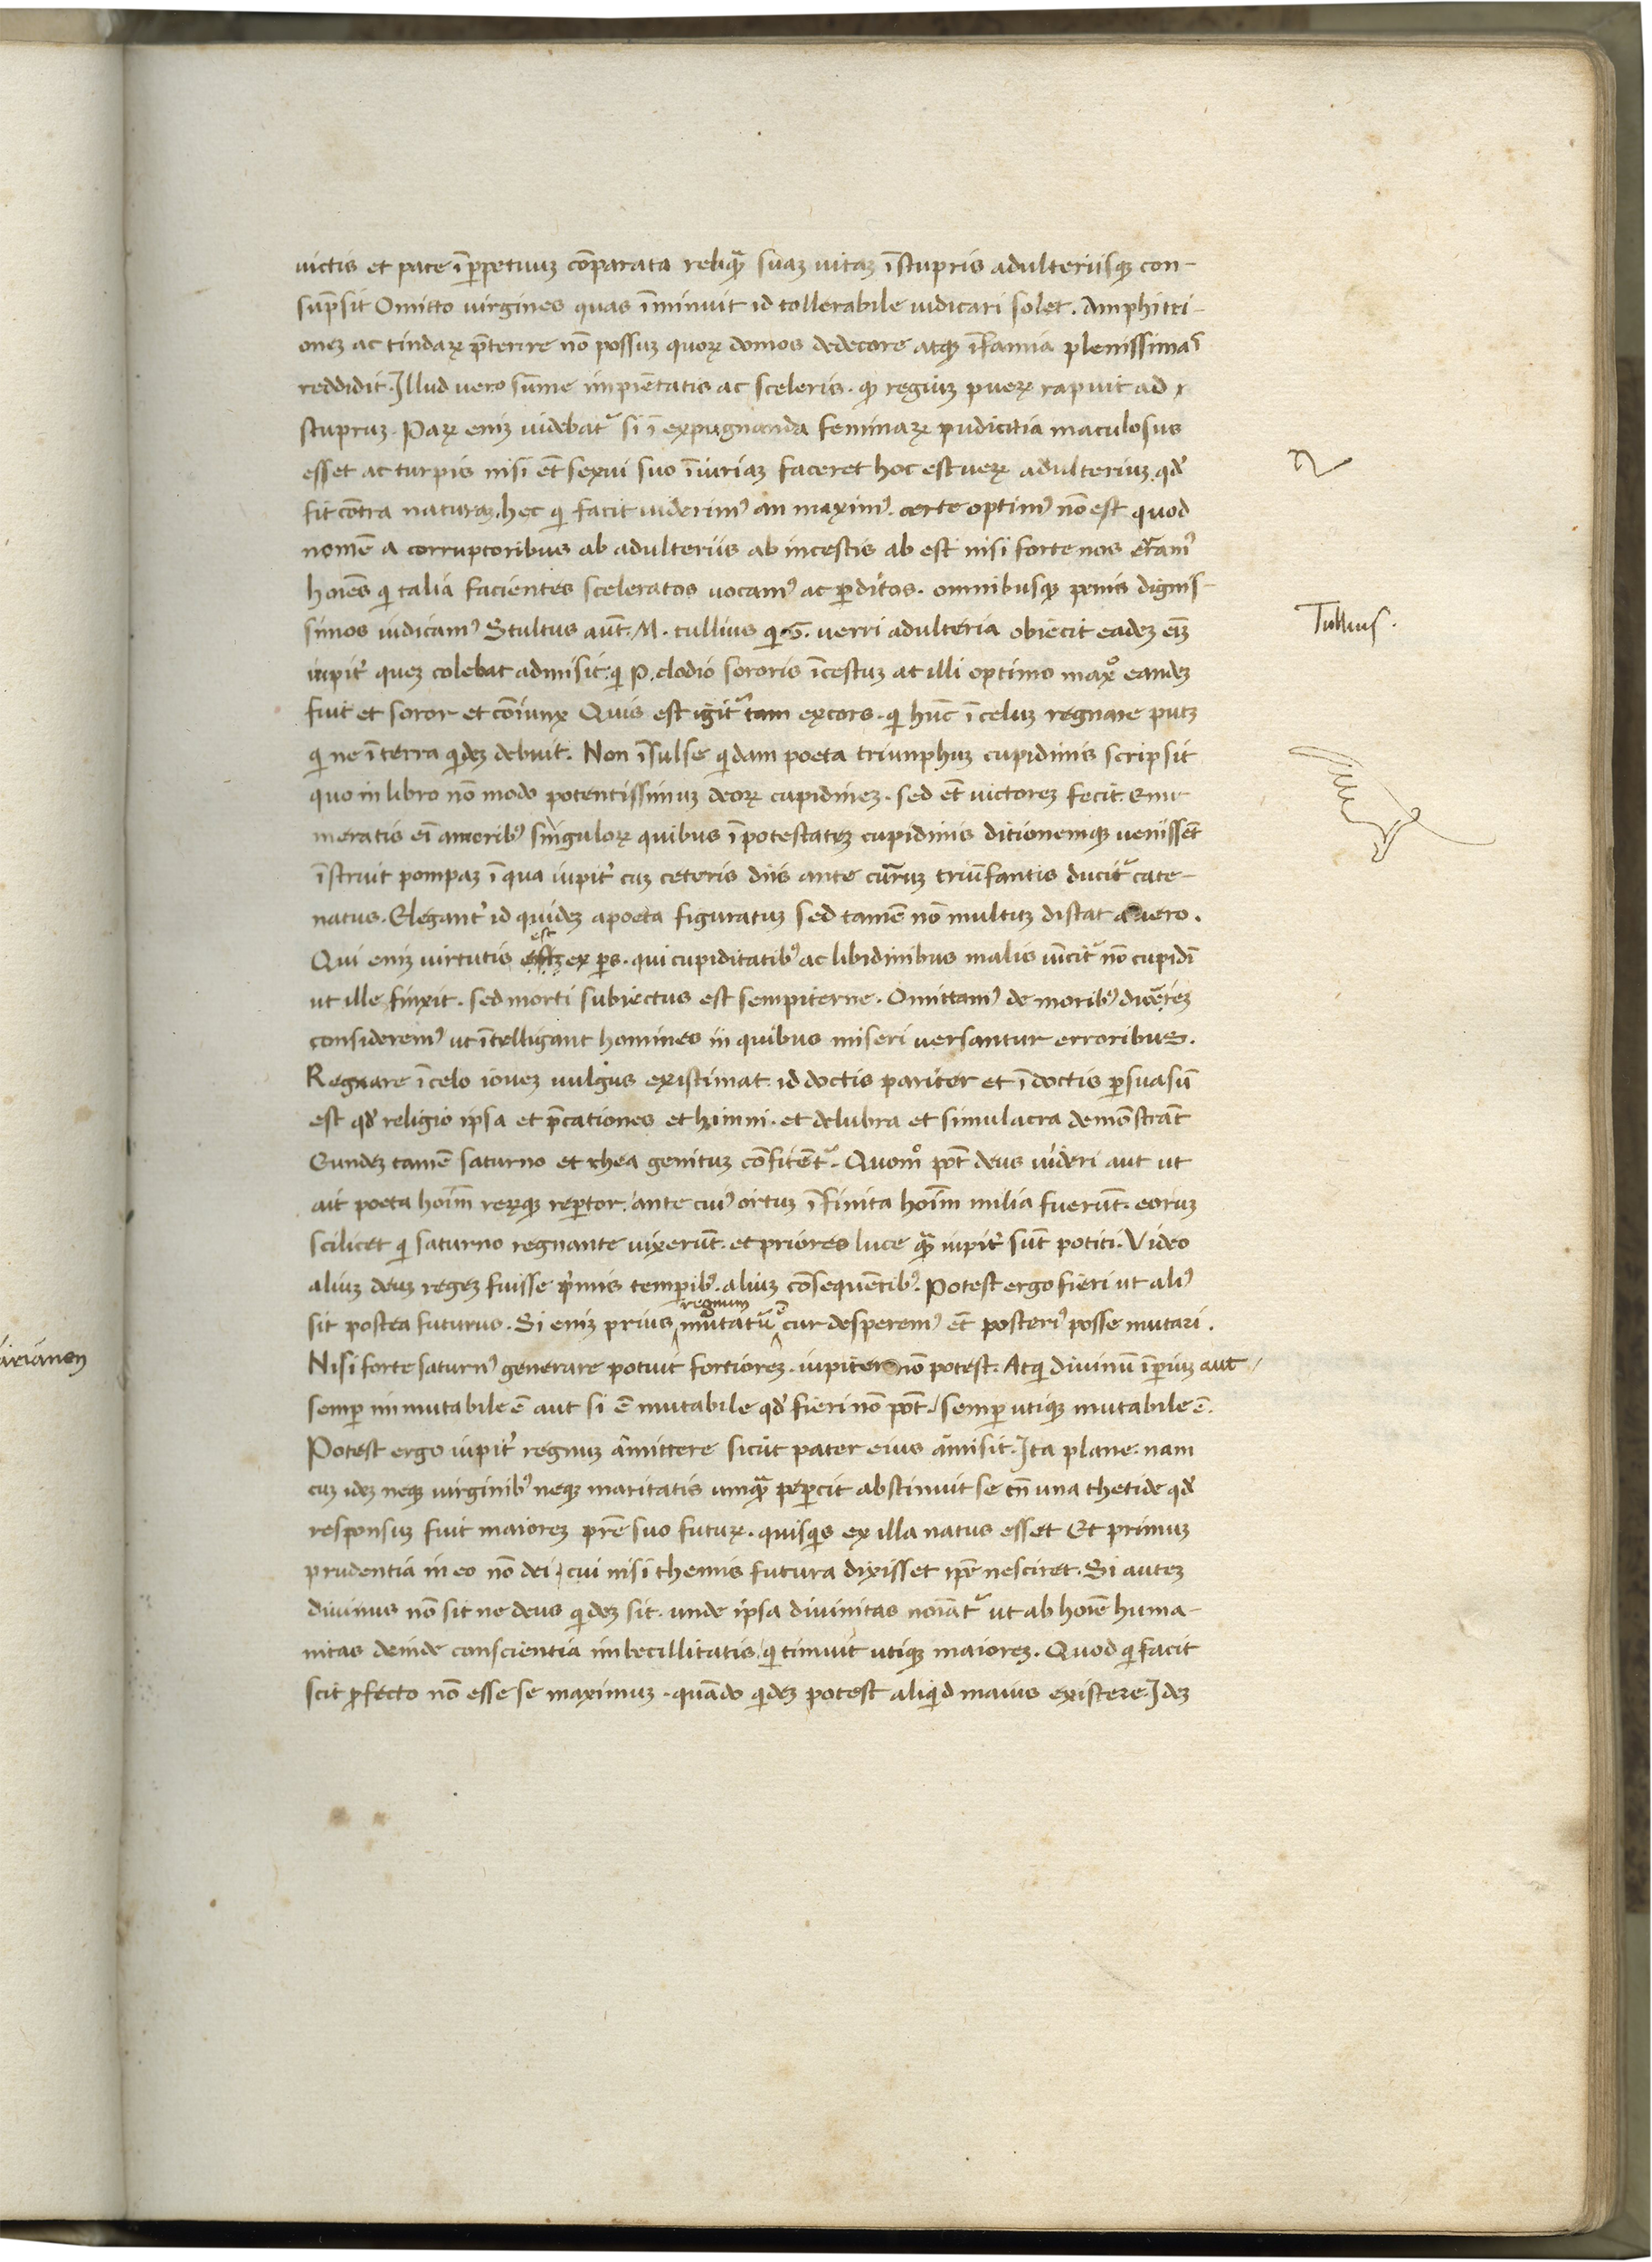 uictis et pace ī ꝑpetuuꝫ cōparata reliquā suaꝫ uitaꝫ ī stupris adulteriisqꝫ con-
sūpsit Omitto uirgines quas īminuit id tollerabile iudicari solet. Amphitri-
oneꝫ ac tindaꝝ p̄terire nō possuꝫ quoꝝ domos dedecore atqꝫ īfamia plenissimas
reddidit. Illud uero sūme impietatis ac sceleris. ꝙ regiuꝫ pueꝝ rapuit ad
stupruꝫ. Paꝝ eniꝫ uidebatᷣ si ī expugnanda feminaꝝ pudicitia maculosus
esset ac turpis nisi et̄ sexui suo īiuriaꝫ faceret hoc est ueꝝ adulteriuꝫ. qd̓
fit cōtra naturaꝫ. hec qi facit uiderimꝰ an maximꝰ. certe optimꝰ nō est quod
nomē a corruptoribus ab adulteriis ab incestis ab est nisi forte nos erramꝰ
hoīes qi talia facientes sceleratos uocamꝰ ac ꝑditos. omnibusqꝫ penis dignis-
simos iudicamꝰ Stultus aūt. M. tullius qi G. uerri adulteria obiecit eadeꝫ eniꝫ
iupit̓ queꝫ colebat admisit. qi P. clodio sororis īcestuꝫ at illi optimo maxo eandeꝫ
fuit et soror et cōiunx Quis est igitᷣ tam excors. qi hūc ī celuꝫ regnare putꝫ
qi ne ī terra qideꝫ debuit. Non īsulse qidam poeta triunphuꝫ cupidinis scripsit
quo in libro nō modo potentissimuꝫ deoꝝ cupidineꝫ. sed et̄ uictoreꝫ fecit. enu-
meratis eī amoribꝰ singuloꝝ quibus ī potestateꝫ cupidinis ditionemqꝫ uenissēt
īstruit pompaꝫ ī qua iupit̓ cuꝫ ceteris diis ante curruꝫ triūfantis ducitᷣ cate-
natus. Elegant̓ id quideꝫ a poeta figuratuꝫ sed tamē nō multuꝫ distat a uero.
est
Qui eniꝫ uirtutis ex ꝑs. qui cupiditatibꝰ ac libidinibus malis uīcitᷣ nō cupidī
ut ille finxit. sed morti subiectus est sempiterne. Omittamꝰ de moribꝰ dicere
consideremꝰ ut ītelligant homines in quibus miseri uersantur erroribus.
Regnare ī celo ioueꝫ uulgus existimat id doctis pariter et ī doctis ꝑsuasū
est qd̓ religio ipsa et p̄cationes et himni. et delubra et simulacra demōstrāt
Eundeꝫ tamē saturno et rhea genituꝫ cōfitētᷣ. Quomo pōt deus uideri aut ut
ait poeta hoīm reꝝqꝫ reꝑtor. ante cuiꝰ ortuꝫ īfinita hoīm milia fuerūt. eoruꝫ
scilicet qi saturno regnante uixerūt. et priores luce quā iupit̓ sūt potiti. Video
aliuꝫ deuꝫ regeꝫ fuisse p̓mis temporibꝰ. aliuꝫ cōsequētibꝰ. Potest ergo fieri ut aliꝰ
regnum
sit postea futurus. Si eniꝫ prius mutatū cur desperemꝰ et̄ posteriꝰ posse mutari.
Nisi forte saturnꝰ generare potuit fortioreꝫ. iupiter nō potest. Atqi diuinū īperiuꝫ aut
semꝑ immutabile ē aut si ē mutabile qd̓ fieri nō pōt. semꝑ utiqꝫ mutabile ē.
Potest ergo iupit̓ regnuꝫ amittere sicut pater eius amisit. Ita plane. nam
cuꝫ ideꝫ neqꝫ uirginibꝰ neqꝫ maritatis umquā peꝑcit abstinuit se tn̄ una thetide qd̓
responsuꝫ fuit maioreꝫ pr̄e suo futuꝝ. quisqis ex illa natus esset Et primuꝫ
prudentia in eo nō dei. cui nisi themis futura dixisset ip̄e nesciret. Si auteꝫ
diuinus nō sit ne deus qideꝫ sit. unde ipsa diuinitas noīatᷣ ut ab hoīe huma-
nitas deinde conscientia imbecillitatis. qi timuit utiqꝫ maioreꝫ. Quod qi facit
scit ꝓfecto nō esse se maximuꝫ. quādo qideꝫ potest aliqid maius existere. Ideꝫ
Tullius.